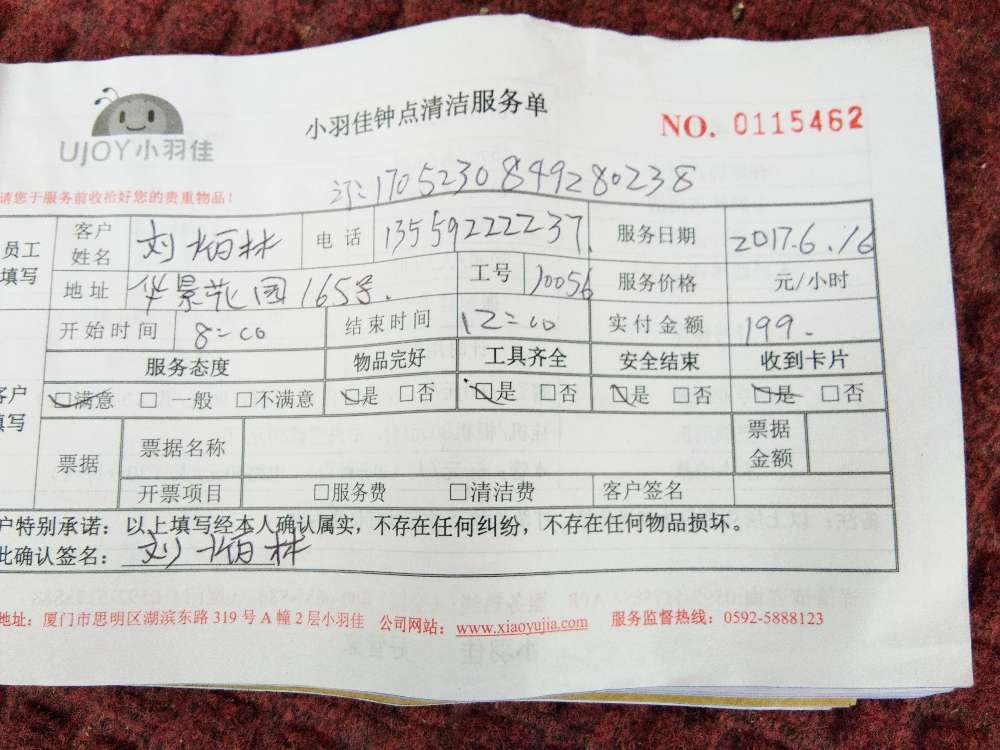 UJOY小羽佳
小羽佳钟点清洁服务单
NO. 0115462
请您于服务前收拾好您的贵重物品！
订:1705230849280238
员工填写 客户姓名 刘柏林 电话 13559222237. 服务日期 2017.6.16
地址 华景花园165号. 工号 10056 服务价格 元/小时
开始时间 8:00 结束时间 12:00 实付金额 199.
客户填写 服务态度 物品完好 工具齐全 安全结束 收到卡片
☑满意 □ 一般 □不满意 ☑是 □否 ☑是 □否 ☑是 □否 ☑是 □否
票据 票据名称 票据金额
开票项目 □服务费 □清洁费 客户签名
户特别承诺：以上填写经本人确认属实，不存在任何纠纷，不存在任何物品损坏。
此确认签名：刘柏林
地址：厦门市思明区湖滨东路 319 号 A 幢 2 层小羽佳 公司网站：www.xiaoyujia.com 服务监督热线：0592-5888123